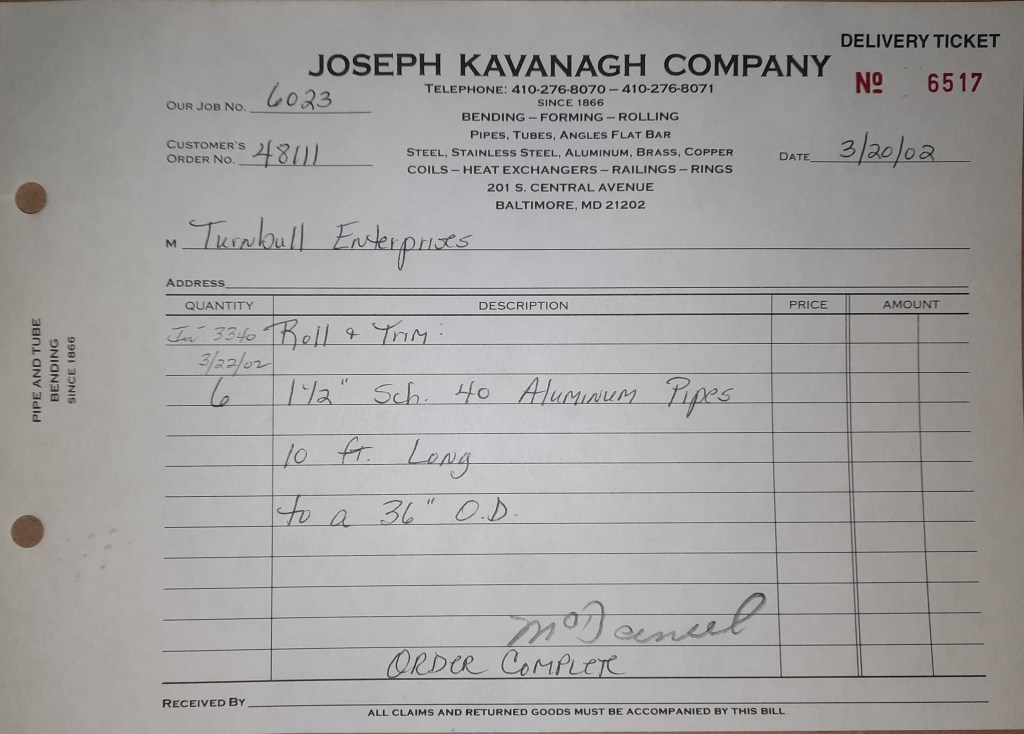 DELIVERY TICKET
JOSEPH KAVANAGH COMPANY
Nº 6517
TELEPHONE: 410-276-8070 – 410-276-8071
SINCE 1866
OUR JOB NO. 6023
BENDING – FORMING – ROLLING
PIPES, TUBES, ANGLES FLAT BAR
CUSTOMER'S
ORDER NO. 48111
STEEL, STAINLESS STEEL, ALUMINUM, BRASS, COPPER
DATE 3/20/02
COILS – HEAT EXCHANGERS – RAILINGS – RINGS
201 S. CENTRAL AVENUE
BALTIMORE, MD 21202
M Turnbull Enterprises
ADDRESS
QUANTITY DESCRIPTION PRICE AMOUNT
Inv 3340 Roll & Trim:
3/22/02
6 1 1/2" Sch. 40 Aluminum Pipes
10 ft. Long
to a 36" O.D.
McDaniel
ORDER COMPLETE
RECEIVED BY
ALL CLAIMS AND RETURNED GOODS MUST BE ACCOMPANIED BY THIS BILL
PIPE AND TUBE
BENDING
SINCE 1866